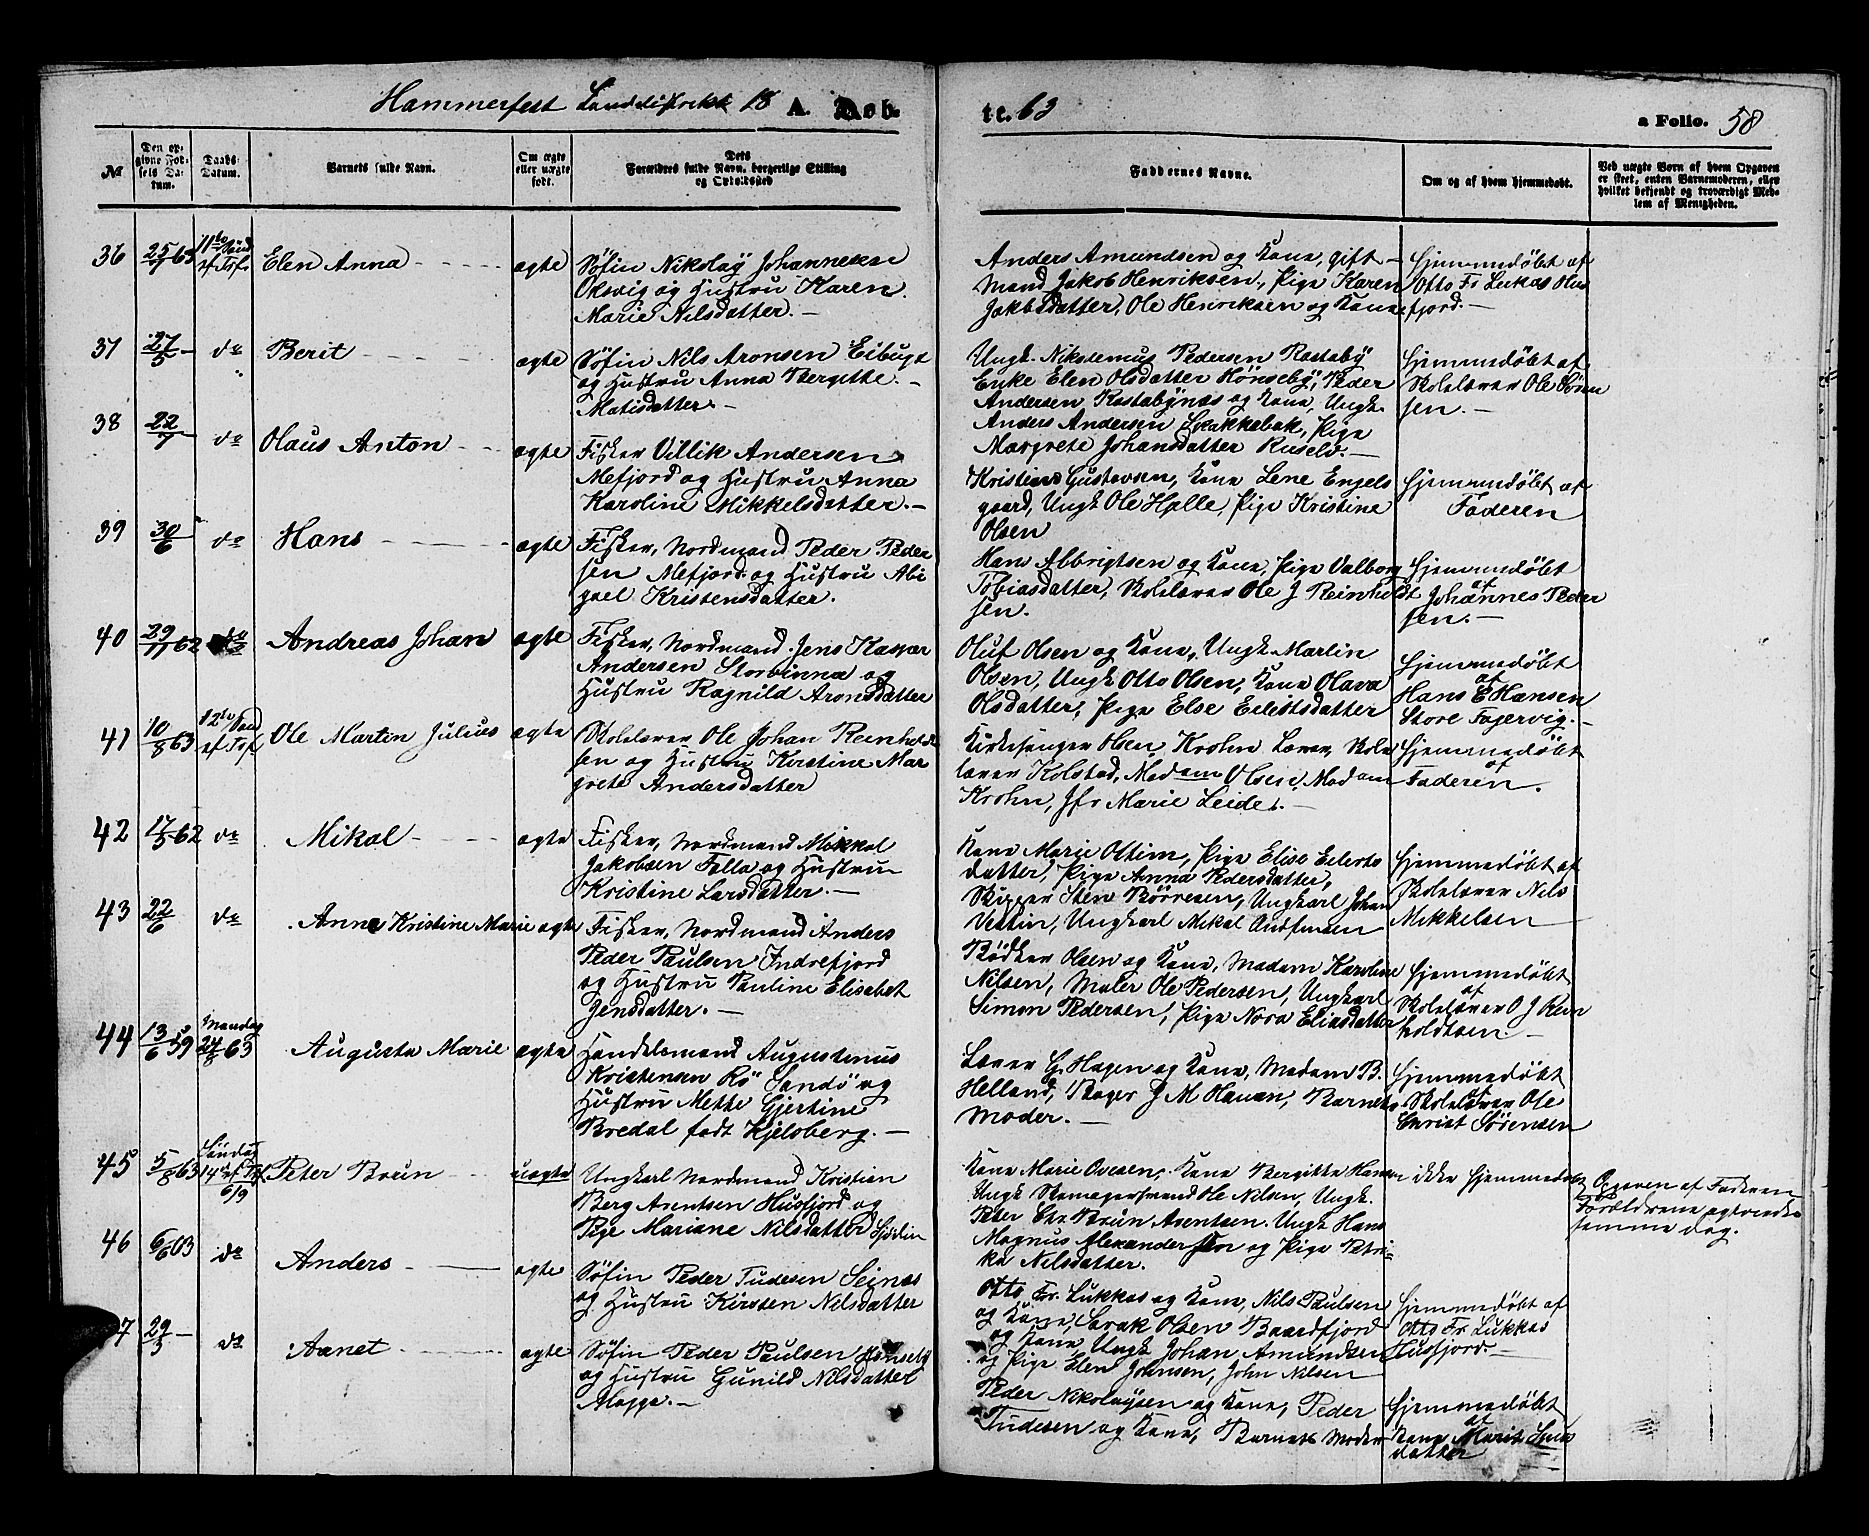 Hammerfest Landdistrikt 18 A. Døb.
te. 63
a Folio. 58
№
Den opgivne Fødsels Datum.
Daabs-Datum.
Barnets fulde Navn.
Om ægte eller uægte født.
Dets Forældres fulde Navn, borgerlige Stilling og Opholdssted
Faddernes Navne.
Om og af hvem hjemmedøbt.
Ved uægte Børn af hvem Opgaven er skeet, enten Barnemoderen, eller hvilket bekjendt og troværdigt Medlem af Menigheden.
36 25/7 63 11te Sönd ef Trf. Elen Anna ægte
Søfin Nikolay Johannesen
Oksvig og Hustru Karen
Marie Nilsdatter. —
Anders Amundsen og Kone, gift
Mand Jakob Henriksen, Pige Karen
Jakobsdatter, Ole Henriksen og Kone
Hjemmedøbt af
Otto Fr Lukas Hus
fjord. —
37 27/5 — do Berit ægte
Søfin Nils Aronsen Eibugt
og Hustru Anna Bergitte
Matisdatter —
Ungk. Nikodemus Pedersen Rastaby
Enke Elen Olsdatter Hönseby, Peder
Andersen Rastabynæs og Kone, Ungk.
Anders Andersen Skakkebak, Pige
Margrete Johansdatter Ruselv. —
Hjemmedøbt af
Skolelærer Ole Sören
sen. —
38 22/7 do Olaus Anton ægte
Fisker Villik Andersen
Mefjord og Hustru Anna
Karoline Mikkelsdatter. —
Kristians Gustavsen, Kone Lene Engels
gaard, Ungk Ole Halle, Pige Kristine
Olsen
Hjemmedøbt af
Faderen
39 30/6 do Hans ægte
Fisker, Nordmand Peder Peder
sen Mefjord og Hustru Abi
gael Kristensdatter.
Hans Albrigtsen og Kone, Pige Valborg
Tobiasdatter, Skolelærer Ole J Reinholdt
sen.
Hjemmedøbt
af
Johannes Peder
sen. —
40 29/11 62 do Andreas Johan ægte
Fisker, Nordmand Jens Kasper
Andersen Storvinna og
Hustru Ragnild Aronsdatter
Oluf Olsen og Kone, Ungk Martin
Olsen, Ungk Otto Olsen, Kone Olava
Olsdatter, Pige Else Eilertsdatter
Hjemmedøbt
af
Hans E Hansen
Store Fajervig. —
41 10/8 63 12te Sönd ef Trf Ole Martin Julius ægte
Skolelærer Ole Johan Reinholdt
sen og Hustru Kristine Mar
grete Andersdatter
Kirkesanger Olsen, Krohn Lærer, Skole
lærer Kolstad, Madam Olsen, Madam
Krohn, Jfr Marie Leide. —
Hjemmedøbt
af
Faderen.
42 17/5 62 do Mikal ægte
Fisker, Nordmand Mikkel
Jakobsen Falla og Hustru
Kristine Larsdatter. —
Kone Marie Oltim, Pige Elise Eilerts
datter, Pige Anna Pedersdatter,
Skipper Sten Børresen, Ungkarl Johan
Vestin, Ungkarl Mikal
Hjemmedøbt af
Skolelærer Nils
Mikkelsen
43 22/6 do Anne Kristine Marie ægte
Fisker, Nordmand Anders
Peder Paulsen Indrefjord
og Hustru Pauline Elisabet
Jensdatter. —
Bødker Olsen og Kone, Madam Karoline
Nilsen, Maler Ole Pedersen, Ungkarl
Simon Pedersen, Pige Nora Eliasdatter
Hjemmedøbt
af
Skolelærer O J Rein
holdtsen. —
44 13/6 59 Mandag 24/8 63 Augusta Marie ægte
Handelsmand Augustinus
Kristensen Rö Sandö og
Hustru Mette Gjertine
Bredal født Kjelsberg. —
Lærer G Hagen og Kone, Madam B.
Helland, Bager J M Hansen, Barnets
Moder. —
Hjemmedøbt
af
Skolelærer Ole
Christ Sørensen
45 5/8 63 Søndag 14de ef Trf 6/9 Peter Brun uægte
Ungkarl Nordmand Kristian
Berg Arentsen Husfjord og
Pige Mariane Nilsdatter
Kone Marie Ovesen, Kone Bergitte Hansen
Ungk Skomagersvend Ole Nilsen, Ungk.
Peter Chr Brun Arentsen. Ungk Hans
Magnus Alexandersen og Pige Petri-
ka Nilsdatter.
ikke hjemmedøbt
Opgaven af Faderen
Forældrene
samme dag.
46 6/6 63 do Anders ægte
Søfin Peder Tudesen Seinæs
og Hustru Kirsten Nilsdatter
Otto Fr. Lukkas og Kone, Nils Paulsen
og Kone, Sarak Olsen Baardfjord
og Kone, Ungk Johan Amundsen
og Pige Elen Johnsen, John Nilsen
Hjemmedøbt af
Otto Fr. Lukkas
Husfjord. —
7 29/5 — do Aanet ægte
Søfin Peder Paulsen Hönseby
og Hustru Gunild Nilsdatter
Peder Nikolaysen og Kone, Peder
Tudesen og Kone, Barnets Moder
Hjemmedøbt
af
Kone Marit
datter